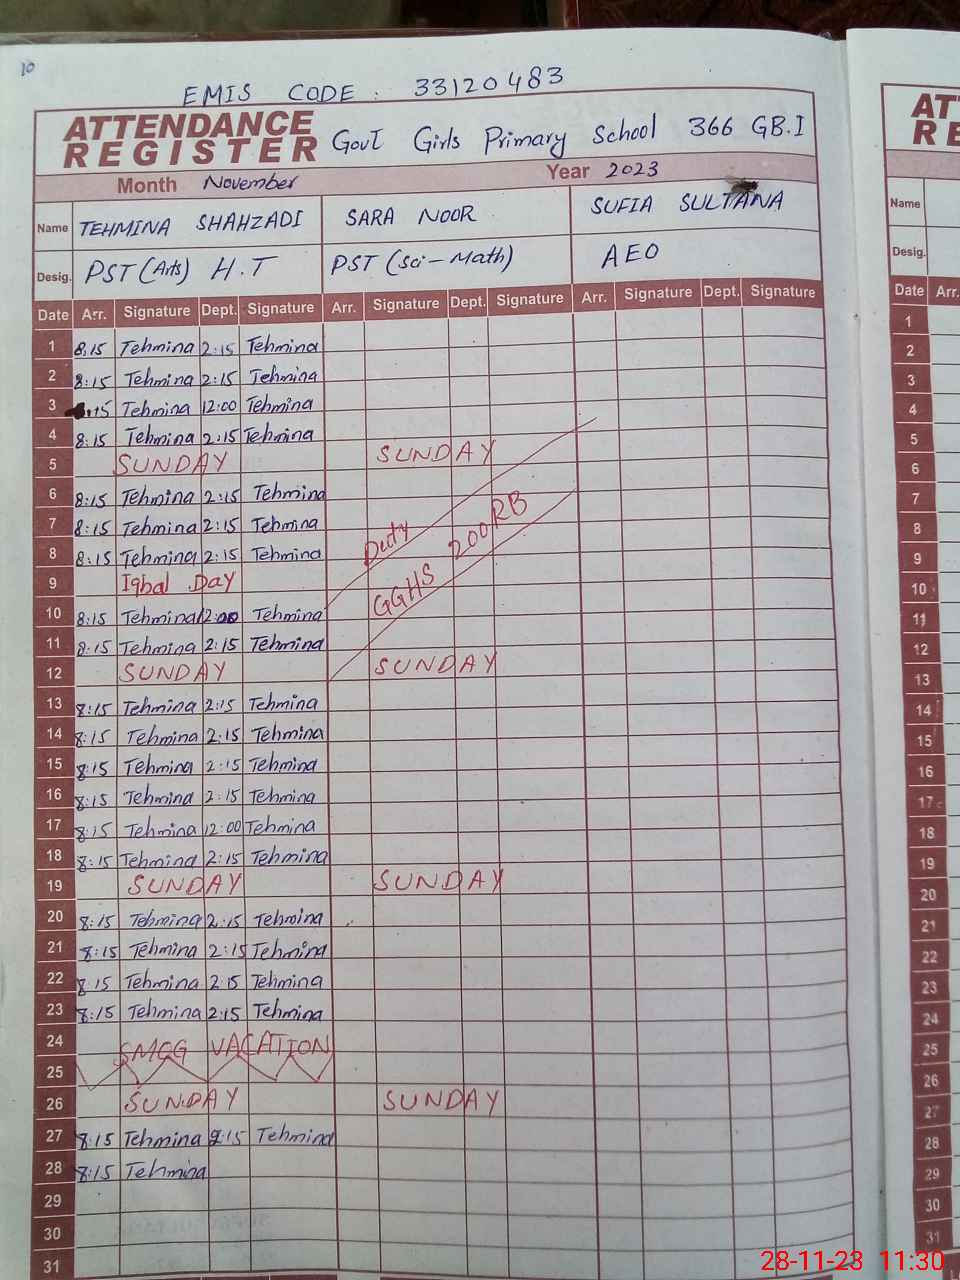 10
EMIS CODE : 33120483
ATTENDANCE REGISTER Govt Girls Primary School 366 GB.I
Month November Year 2023
Name TEHMINA SHAHZADI SARA NOOR SUFIA SULTANA
Desig. PST (Arts) H.T PST (Sci-Math) AEO
Date Arr. Signature Dept. Signature Arr. Signature Dept. Signature Arr. Signature Dept. Signature
1 8:15 Tehmina 2:15 Tehmina
2 8:15 Tehmina 2:15 Tehmina
3 :15 Tehmina 12:00 Tehmina
4 8:15 Tehmina 2:15 Tehmina
5 SUNDAY SUNDAY
6 8:15 Tehmina 2:15 Tehmina
7 8:15 Tehmina 2:15 Tehmina
8 8:15 Tehmina 2:15 Tehmina
9 Iqbal DAY
10 8:15 Tehmina 12:00 Tehmina
11 8:15 Tehmina 2:15 Tehmina
Duty
GGHS 200RB
12 SUNDAY SUNDAY
13 8:15 Tehmina 2:15 Tehmina
14 8:15 Tehmina 2:15 Tehmina
15 8:15 Tehmina 2:15 Tehmina
16 8:15 Tehmina 2:15 Tehmina
17 8:15 Tehmina 12:00 Tehmina
18 8:15 Tehmina 2:15 Tehmina
19 SUNDAY SUNDAY
20 8:15 Tehmina 2:15 Tehmina
21 8:15 Tehmina 2:15 Tehmina
22 8:15 Tehmina 2:15 Tehmina
23 8:15 Tehmina 2:15 Tehmina
24 SMOG VACATION
25
26 SUNDAY SUNDAY
27 8:15 Tehmina 2:15 Tehmina
28 8:15 Tehmina
29
30
31
AT
RE
Name
Desig.
Date Arr.
1
2
3
4
5
6
7
8
9
10
11
12
13
14
15
16
17
18
19
20
21
22
23
24
25
26
27
28
29
30
31
28-11-23 11:30